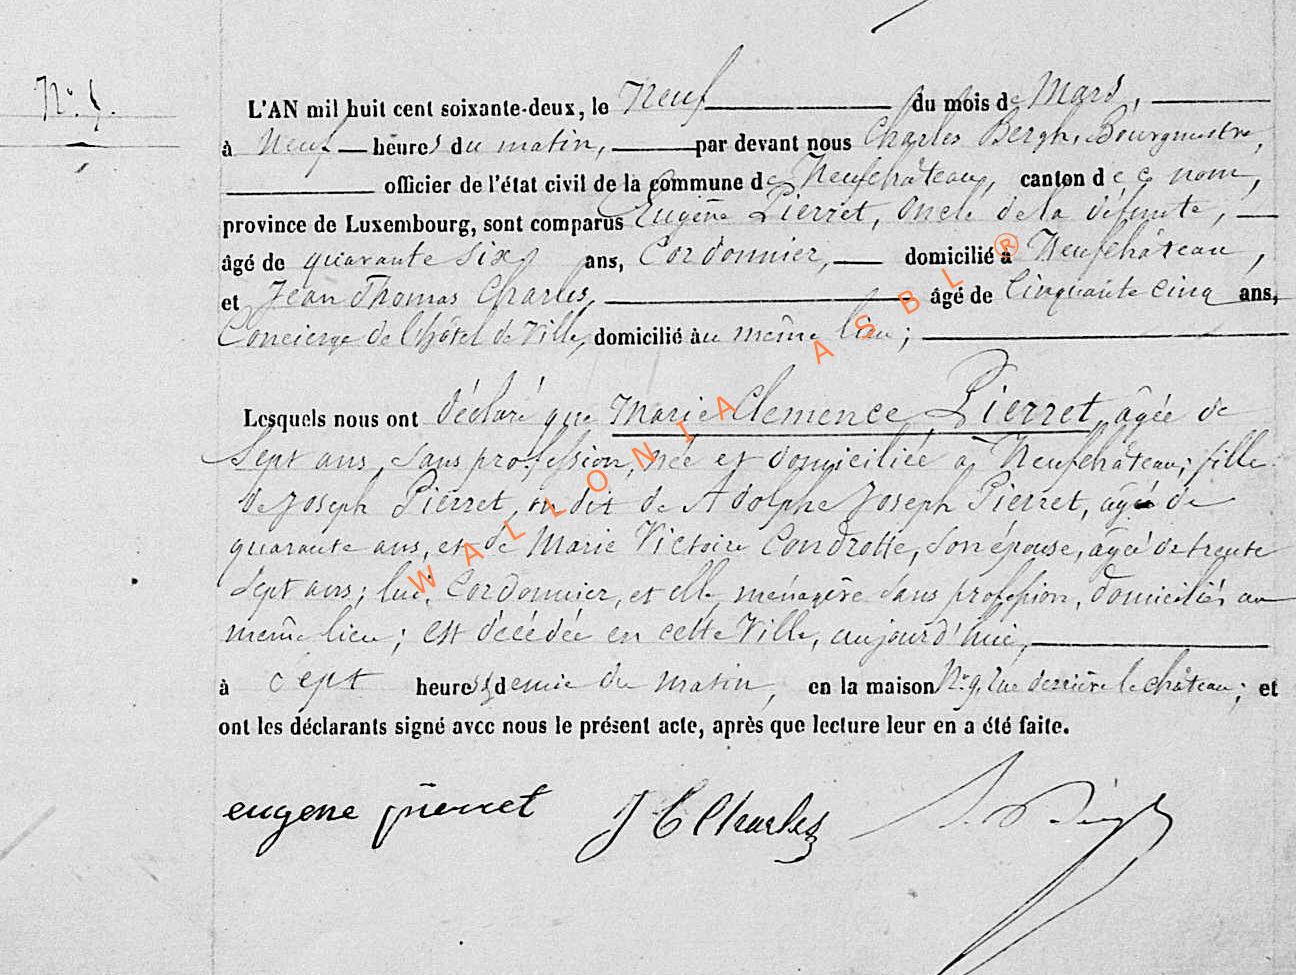 N° 5.
L'AN mil huit cent soixante-deux, le Neuf du mois de Mars,
à Neuf heures du matin, par devant nous Charles Bergh, Bourgmestre,
officier de l'état civil de la commune de Neufchâteau, canton de ce nom,
province de Luxembourg, sont comparus Eugène Pierret, oncle de la défunte,
âgé de quarante six ans, Cordonnier, domicilié à Neufchâteau,
et Jean Thomas Charles, âgé de Cinquante cinq ans,
Concierge de l'hôtel de Ville, domicilié au même lieu;
Lesquels nous ont déclaré que Marie Clemence Pierret, âgée de
Sept ans, sans profession, née et domiciliée à Neufchâteau; fille
de Joseph Pierret, dit de Adolphe Joseph Pierret, âgé de
quarante ans, et de Marie Victoire Condrotte, son épouse, âgée de trente
sept ans; lui, Cordonnier, et elle, ménagère sans profession, domiciliés au
même lieu; est décédée en cette Ville, aujourd'hui,
à sept heures & demie du matin, en la maison N° 9, rue derrière le château; et
ont les déclarants signé avec nous le présent acte, après que lecture leur en a été faite.
eugene pierret J T Charles
WALLONIA ASBL ®